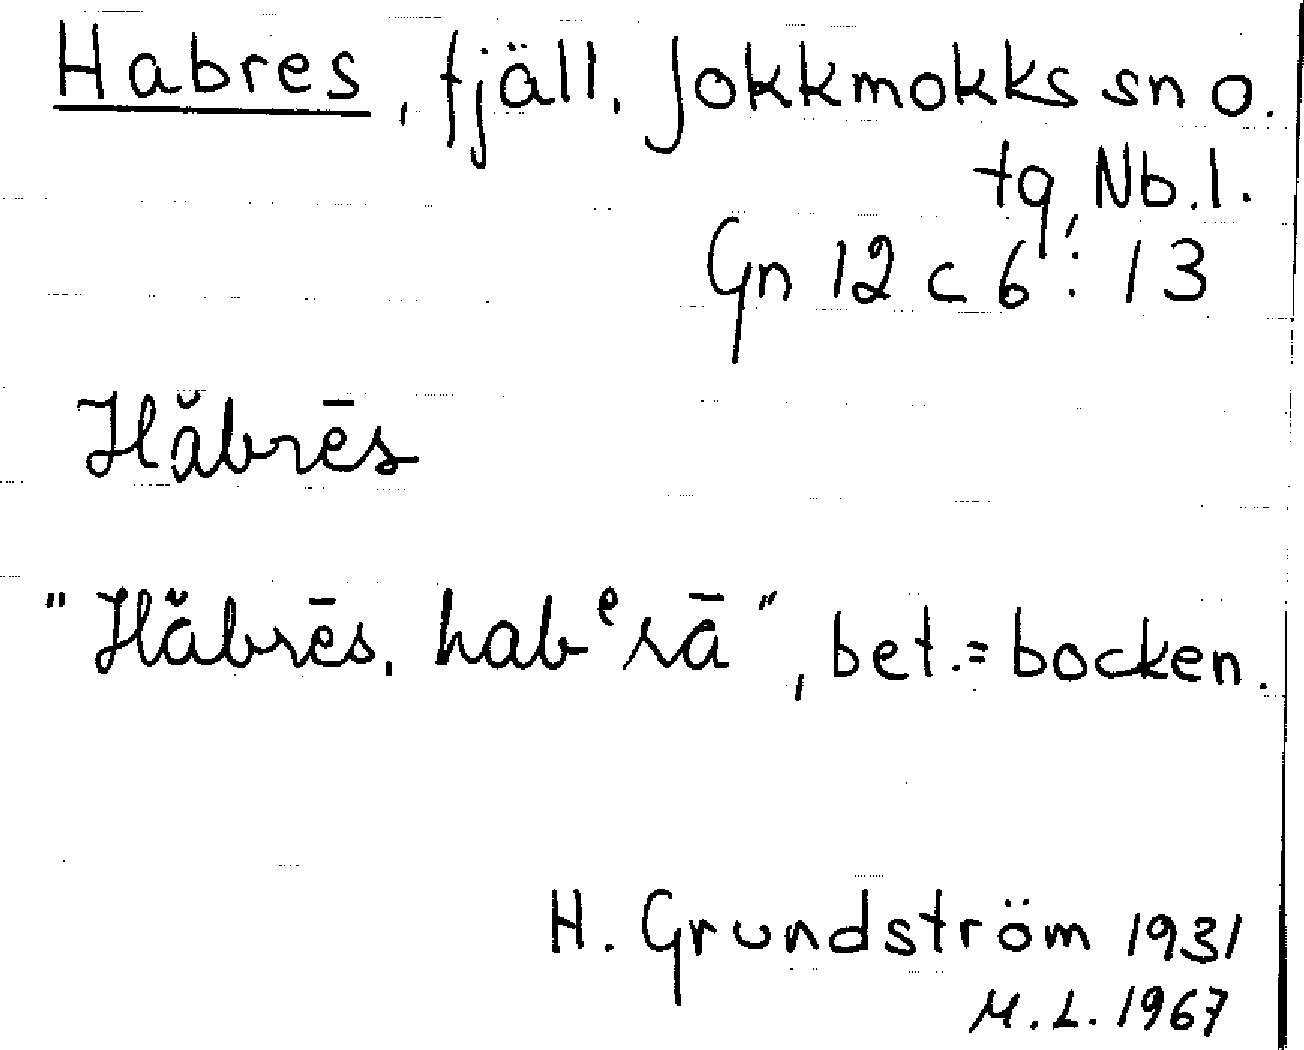 Habres, fjäll, Jokkmokks sn o.
tg, Nb.l.
Gn 12 c 6 : 13
Hăbrēs
"Hăbrēs, habᵉrā", bet.= bocken.
H. Grundström 1931
M.L. 1967